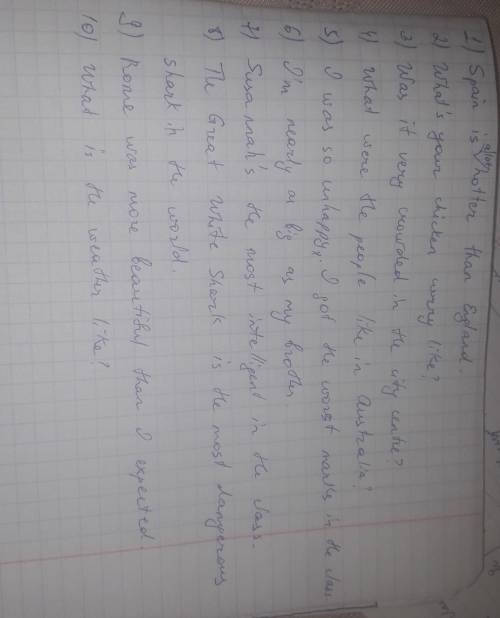 1) Spain is a lot hotter than England.
2) What's your chicken curry like?
3) Was it very crowded in the city centre?
4) What were the people like in Australia?
5) I was so unhappy. I got the worst marks in the class
6) I'm nearly as big as my brother.
7) Susannah's the most intelligent in the class.
8) The Great White Shark is the most dangerous
shark in the world.
9) Rome was more beautiful than I expected.
10) What is the weather like?